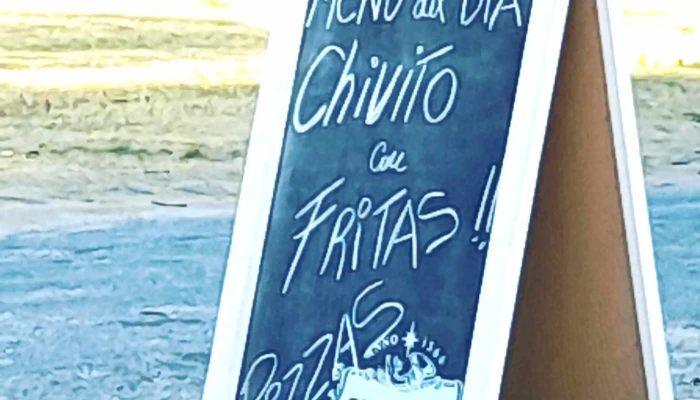 MENU del DIA
Chivito
Con
FRITAS!!
PIZZAS
ANNO 1366